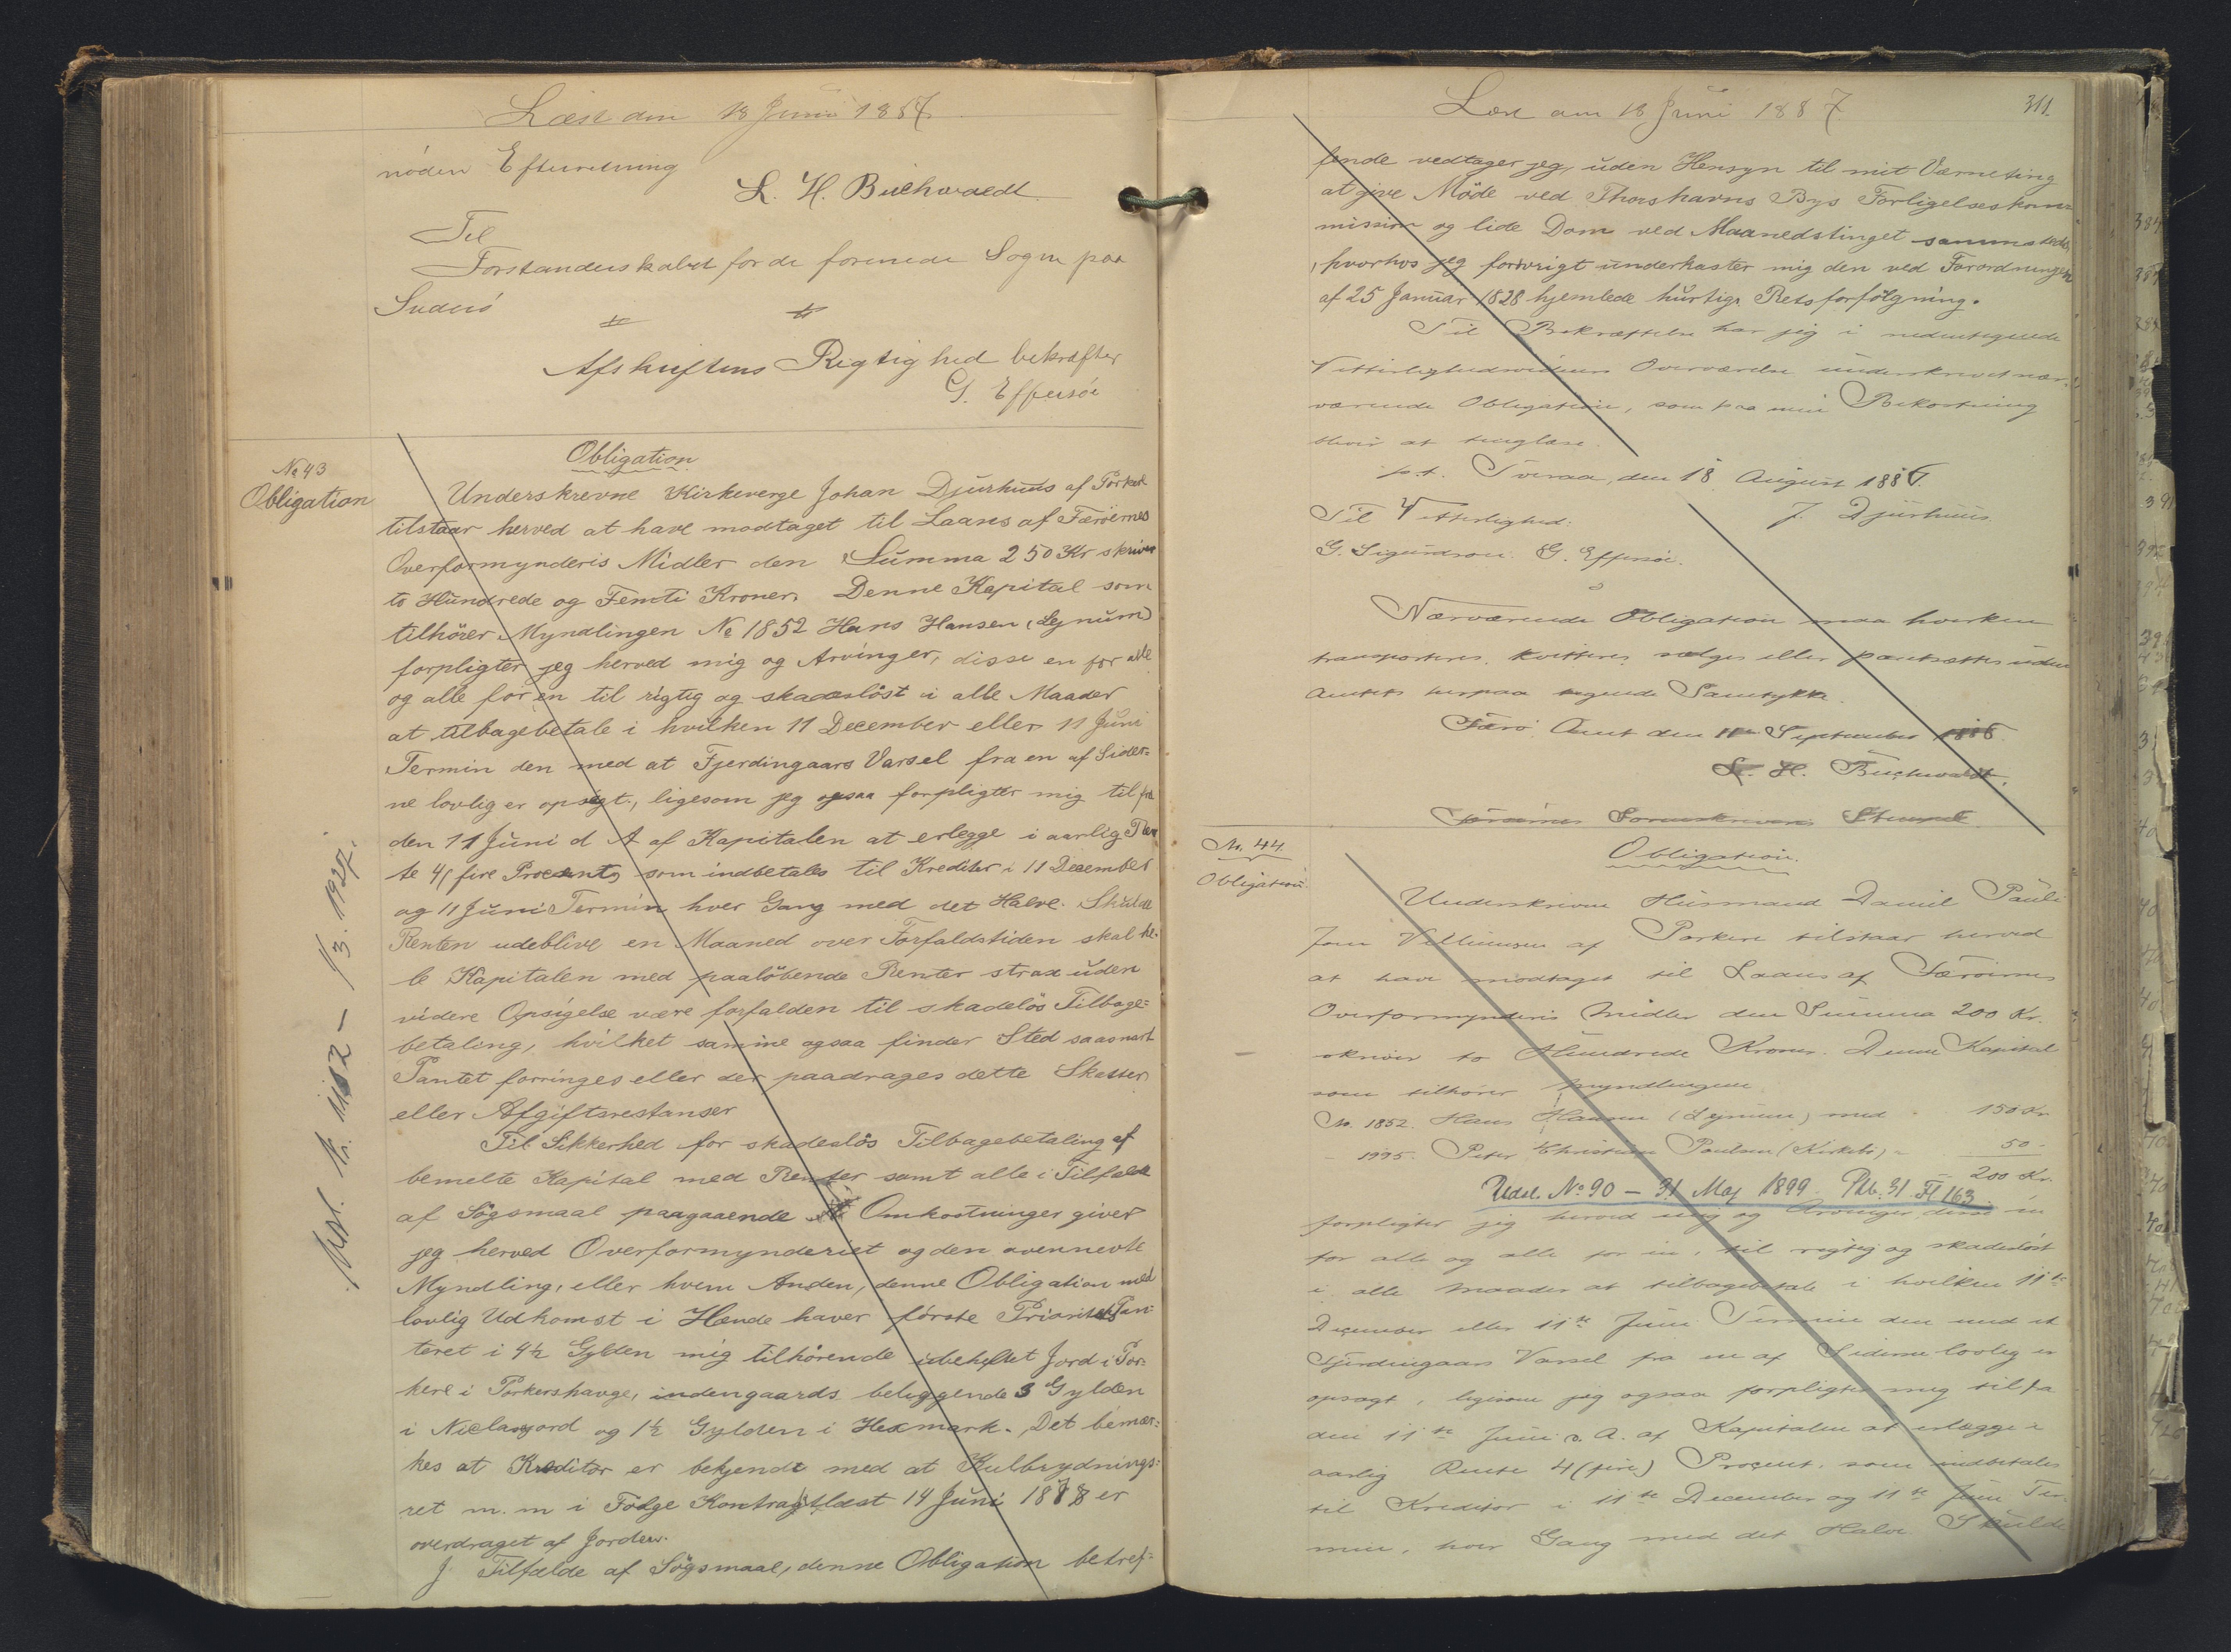 Læst den 18 Juni 1887.
nöden Efterretning
L. H. Buchwaldt
Til
Forstanderskabet for de forenede Sogne paa
Suderö
Afskriftens Rigtighed bekræfter
G. Effersöe
№ 43
Obligation
Obligation
Underskrevne Kirkeverge Johan Djurhuus af Porkere
tilstaar herved at have modtaget til Laans af Færöernes
Overformynderis Midler den Summa 250 Kr skriver
to Hundrede og Femti Kroner. Denne Kapital som
tilhörer Myndlingen № 1852 Hans Hansen (Lejnum)
forpligter jeg herved mig og Arvinger, disse en for alle
og alle for en til rigtig og skadeslöst i alle Maader
at tilbagebetale i hvilken 11 December eller 11 Juni
Termin den med at Fjerdingaars Varsel fra en af Sider=
ne lovlig er opsigt, ligesom jeg ogsaa forpligter mig til fra
den 11 Juni d A af Kapitalen at erlegge i aarlig Ren
te 4 (fire Procent) som indbetales til Kreditor i 11 December
og 11 Juni Termin hver Gang med det Halve. Skulde
Renten udeblive en Maaned over Forfaldstiden skal he-
le Kapitalen med paalöbende Renter strax uden
videre Opsigelse være forfalden til skadelös Tilbage=
betaling, hvilket samme ogsaa finder Sted saasnart
Pantet forringes eller der paadrages dette Skatter
eller Afgiftsrestanser
Til Sikkerhed for skadeslös Tilbagebetaling af
bemelte Kapital med Renter samt alle i Tilfælde
af Sögsmaal paagaaende Omkostninger giver
jeg herved Overformynderiet og den ovennevte
Myndling, eller hvem Anden, denne Obligation med
lovlig Udkomst i Hænde haver förste Prioritets Pan=
teret i 4½ Gylden mig tilhörende ubeheftet Jord i Por-
kere i Porkershauge, indengaards beliggende 3 Gylden
i Niclasjord og 1½ Gylden i Hexmark. Det bemær=
kes at Kreditor er bekjendt med at Kulbrydnings=
ret m. m i Fölge Kontragt læst 14 Juni 1878 er
overdraget af Jorden.
J Tilfælde af Sögsmaal, denne Obligation betref=
1/3. 1927.
Læst den 18 Juni 1887.
311.
fende vedtager jeg, uden Hensyn til mit Værneting
at give Möde ved Thorshavns Bys Forligelseskom=
mission og lide Dom ved Maanedstinget sammesteds,
hvorhos jeg forövrigt underkaster mig den ved Forordningen
af 25 Januar 1828 hjemlede hurtige Retsforfölgning.
Til Bekræftelse har jeg i nedentegnede
Vitterlighedsvidners Overværelse underskrevet nær-
værende Obligation, som paa min Bekostning
bliver at tinglæse.
p.t. Tveraa, den 18 August 1886.
J. Djurhuus.
Til Vitterlighed:
G. Sigurdson. G. Effersöe.
Nærværende Obligation maa hverken
transporteres, kvitteres, sælges eller pantsættes uden
Amtets herpaa tegnede Samtykke.
Færö Amt den 11te September 1886.
L. H. Buchwaldt.
Færöernes Sorenskriveri Stempel
№. 44.
Obligation.
Obligation.
Underskrevne Husmand Daniel Pauli
Joen Vilhelmsen af Porkere tilstaar herved
at have modtaget til Laans af Færöernes
Overformynderis Midler den Summa 200 Kr.
skriver to Hundrede Kroner. Denne Kapital
som tilhörer Myndlingene
№. 1852. Hans Hansen (Lejnum) med - 150 Kr.
- 1995. Peter Christian Poulsen (Kirkebö) - 50 -
- 200 Kr.
Udsl. № 90 - 31 Maj 1899 Pb. 31 Fl 163.
forpligter jeg herved mig og Arvinger disse en
for alle og alle for en, til rigtig og skadeslöst
i alle Maader at tilbagebetale i hvilken 11te
December eller 11te Juni Termin den med et
Fjerdingaars Varsel fra en af Siderne lovlig er
opsagt, ligesom jeg ogsaa forpligter mig til fra
den 11te Juni d. A. af Kapitalen at erlægge i
aarlig Rente 4 (fire) Procent, som indbetales
til Kreditor i 11te December og 11te Juni Ter-
min, hver Gang med det Halve. Skulde